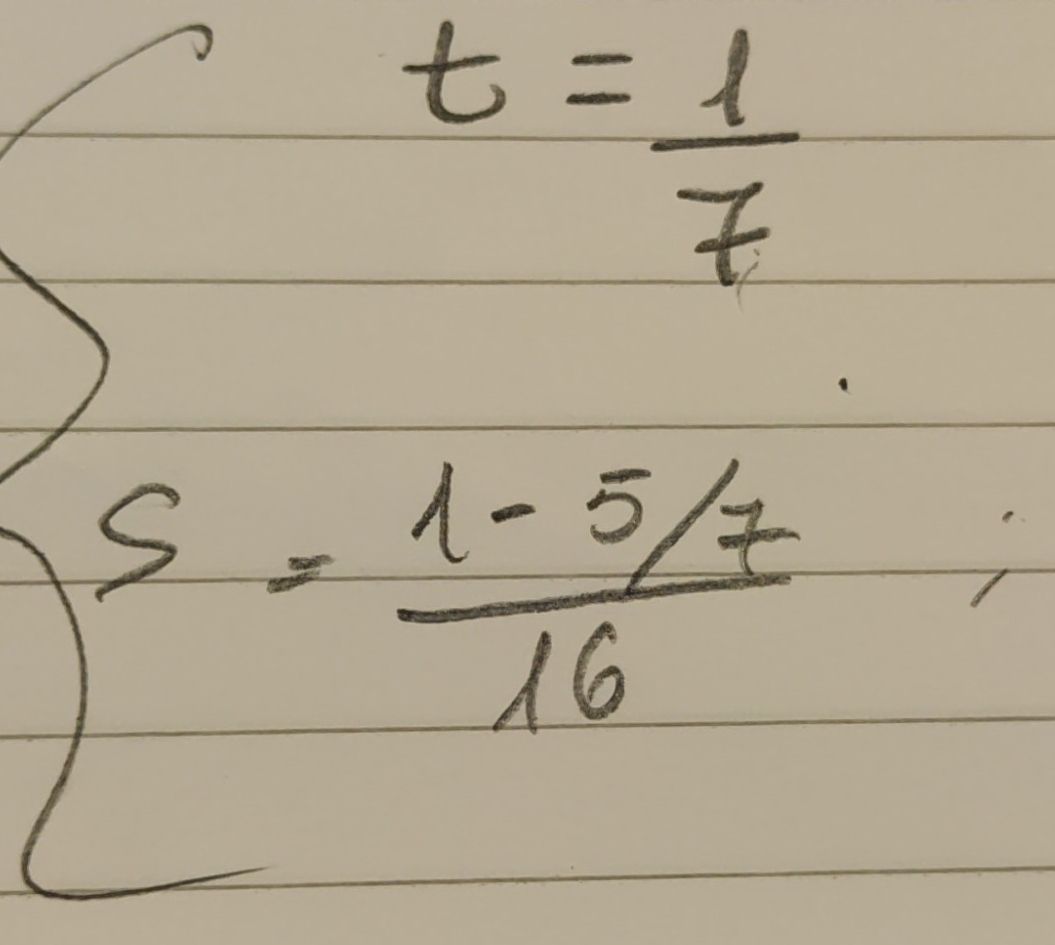 t = 1/7
S = (1 - 5/7)/16 ;